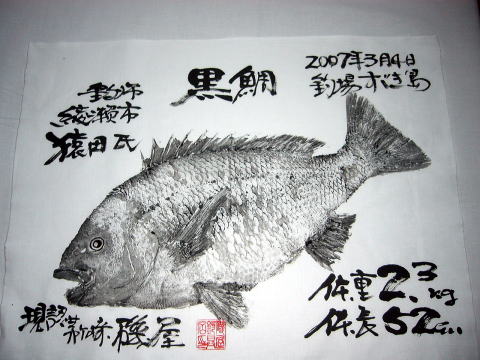 黒鯛
2007年3月4日
釣場 すずき島
釣師
綾瀬市
猿田氏
体重2.3kg
体長52cm
現認 茅ヶ崎 磯屋